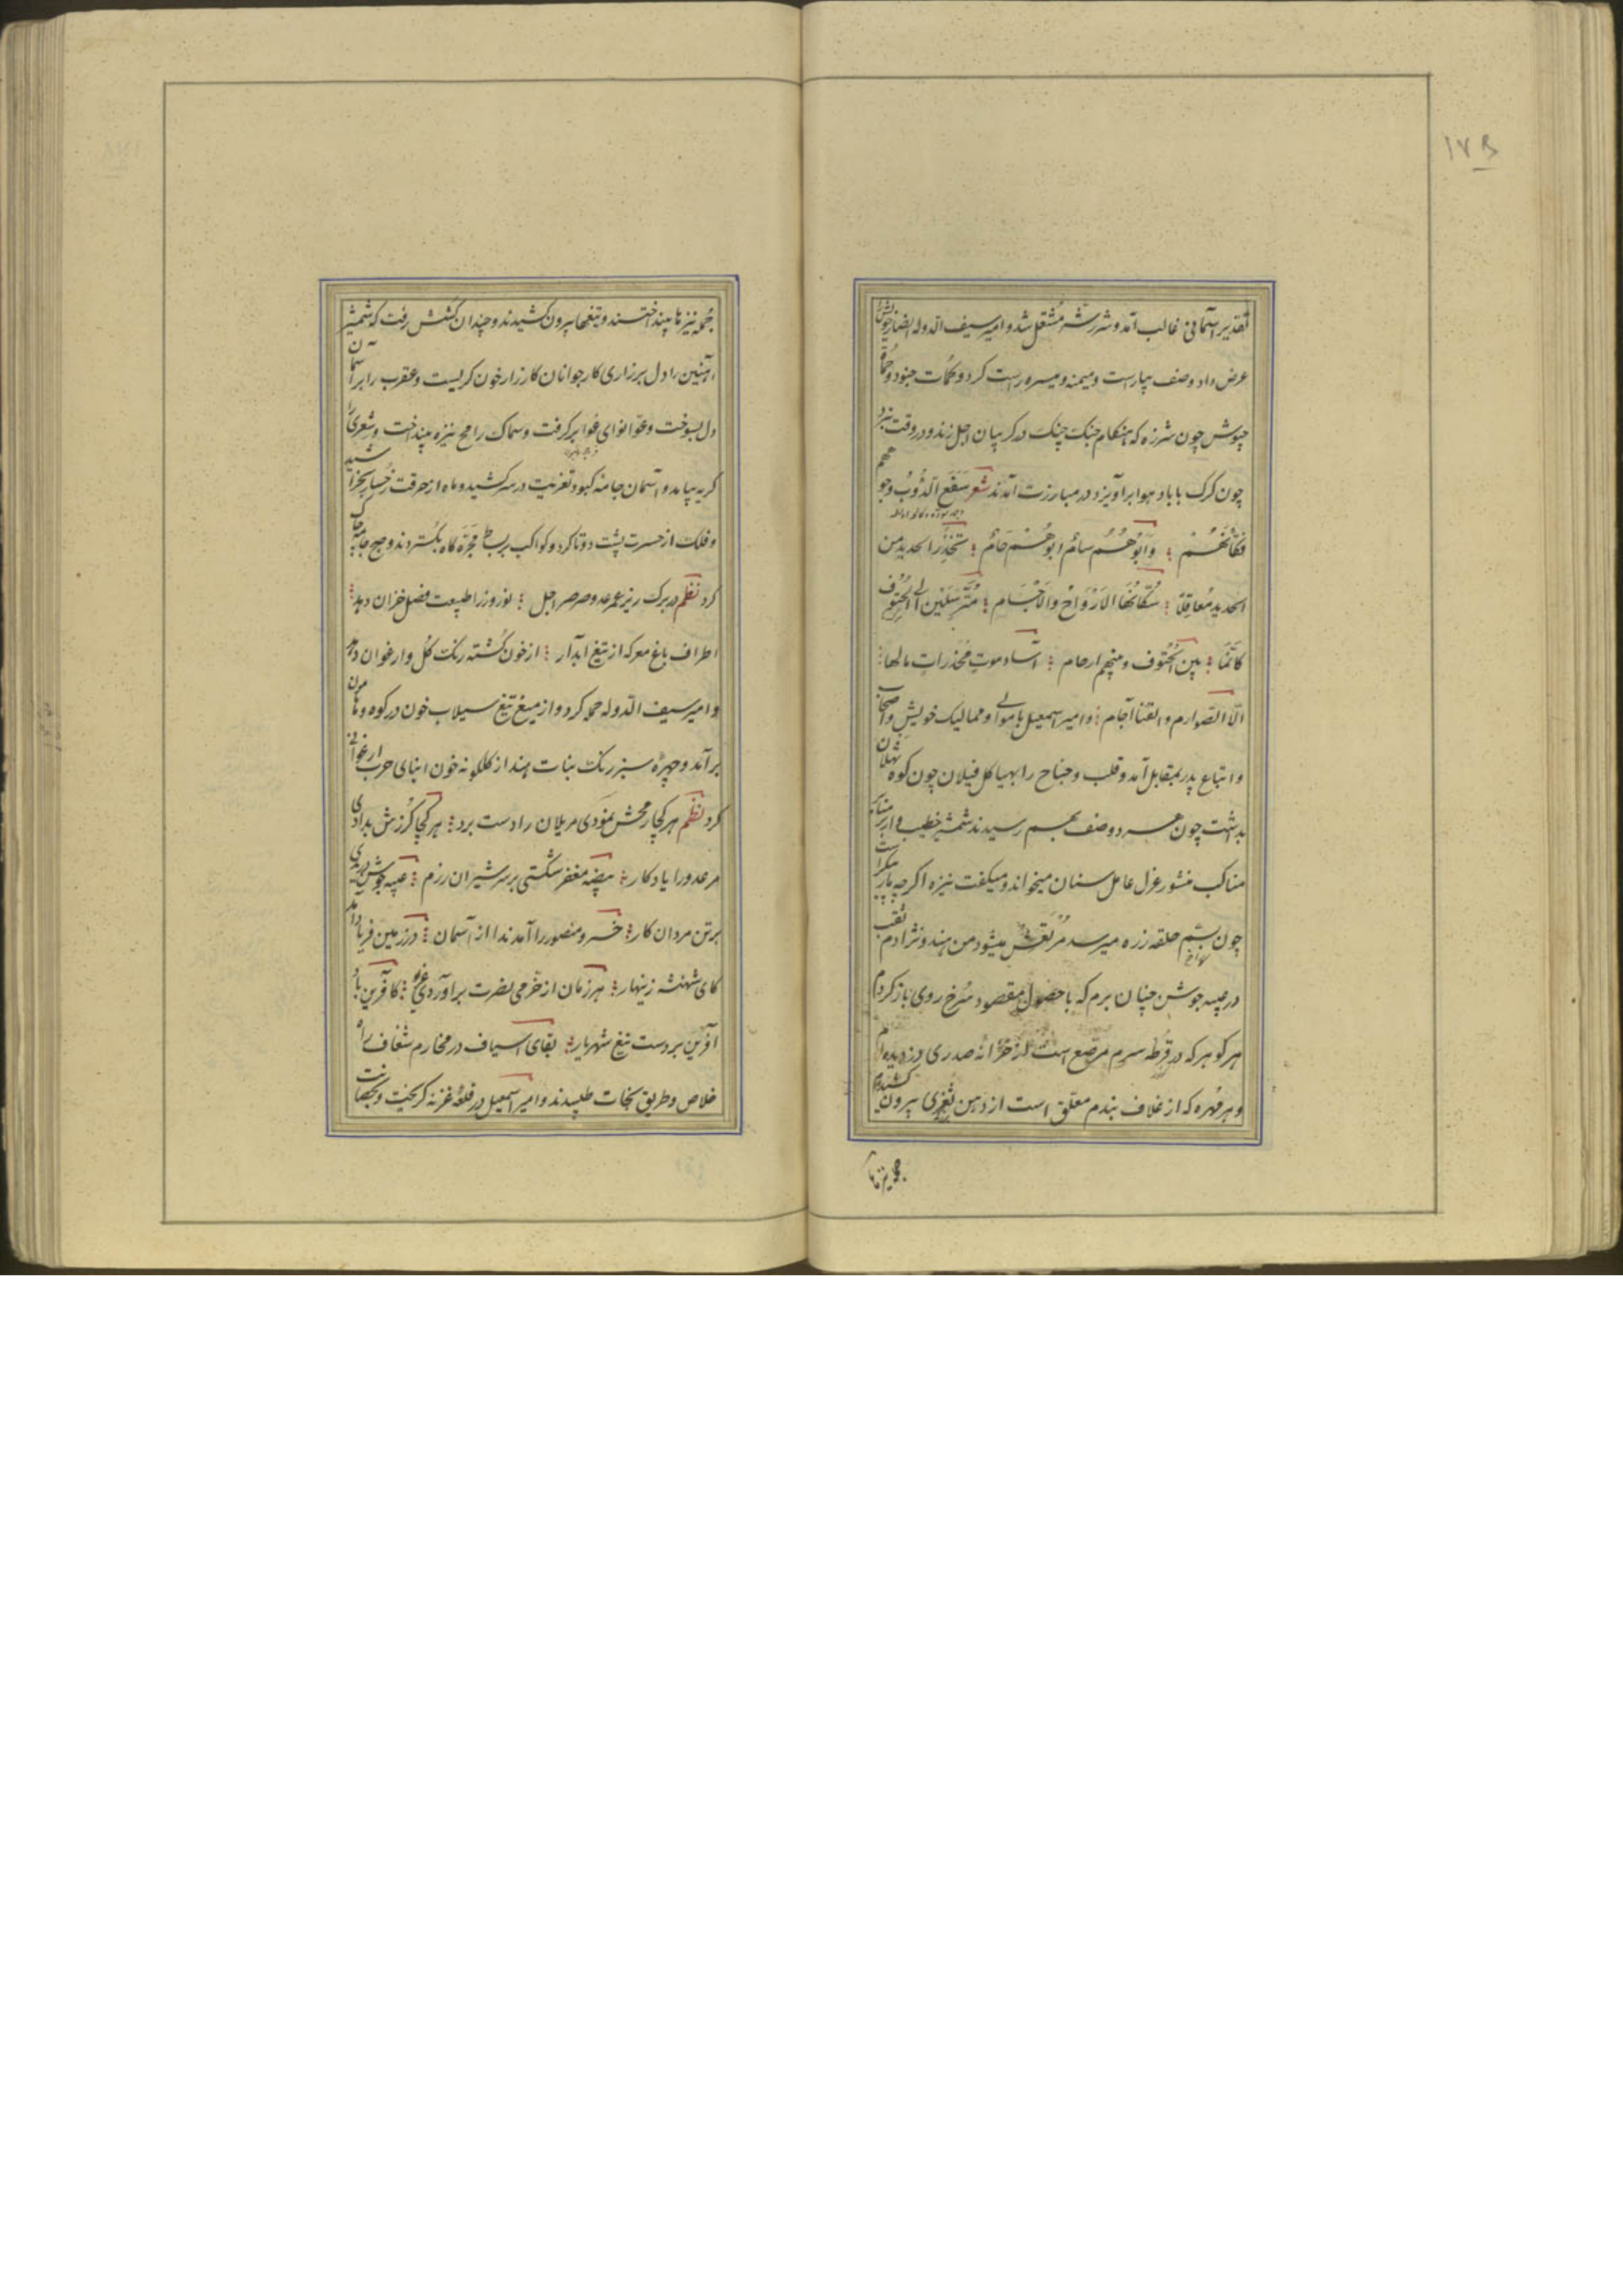 ۱۷۵
تقدیر آسمانی غالب آمد و شرر شر مشتعل شد و امیر سیف الدوله
عرض داد و صف بیاراست و میمنه و میسره راست کرد و کمات جنود و حماة
جیوش چون شرزه که هنکام جنک چنک در کریبان اجل زند و در وقت نبرد
چون کرک با باد هوا برآویزد در مبارزت آمدند شعر سفع الدؤب وجوههم
فکانهم وابوهم سام ابوهم حام تتخذ الحدید من
الحدید معاقلا سکانها الارواح والاجسام مترسلین الی الحتوف
کانما بین الحتوف و بینهم ارحام آساد موت مخدرات مالها
الا الصوارم والقنا آجام و امیر اسمعیل با موالی و ممالیک خویش و اصحاب
و اتباع پدر بمقابل آمد و قلب و جناح را بهیاکل فیلان چون کوه ثهلان
بداشت چون هر دو صف بهم رسیدند شمشیر خطیب وار بر منابر
مناکب منشور عزل عامل سنان میخواند و میکفت نیزه اکرچه
چون بشم حلقه زره میرسد مرتعش میشود من هندو نژادم نقب
در عیبه جوشن چنان برم که با حصول مقصود سرخ روی باز کردم
هر کوهر که در قرطه سرم مرصع است از خزانه صدری دزدیده‌ام
و هر مهره که از غلاف بندم معلق است از دهن ثغری بیرون کشیدم
جمله نیزها
جمله نیزها بینداختند و تیغها بیرون کشیدند و چندان کشش رفت که شمشیر
آهنین را دل بر زاری کار جوانان کارزار خون کریست و عقرب را بر آسمان
دل بسوخت و عوا نوای غوا برکرفت و سماک رامح نیزه بینداخت و شعری را
کریه بیامد و آسمان جامه کبود تعزیت در سر کشید و ماه از حرقت رخسار بخراشید
و فلک از حسرت پشت دوتا کرد و کواکب بر بساط مجره کاه بکستردند و صبح جامه چاک
کرد نظم در برک ریز عمر عدو صرصر اجل نوروز را طبیعت فصل خزان دهد
اطراف باغ معرکه از تیغ آبدار از خون کشته رنک کل و ارغوان دهد
و امیر سیف الدوله حمله کرد و از میغ تیغ سیلاب خون در کوه و هامون
برآمد و چهره سبز رنک بنات هند از کلکونه خون ابنای حرب ارغوانی
کرد نظم هر کجا رمحش نمودی مر یلان را دست برد هر کجا کرزش بدادی
مر عدو را یادکار بیضه مغفر شکستی بر سر شیران رزم عیبه جوشن دریدی
بر تن مردان کار خسرو منصور را آمد ندا از آسمان در زمین فریاد آمد
کای شهنشه زینهار هر زمان از خرمی نصرت برآوردی کآفرین باد
آفرین بر دست تیغ شهریار بقای اسیاف در مخارم شعاف راه
خلاص و طریق نجات طلبیدند و امیر اسمعیل در قلعه غزنه کریخت و بحصانت